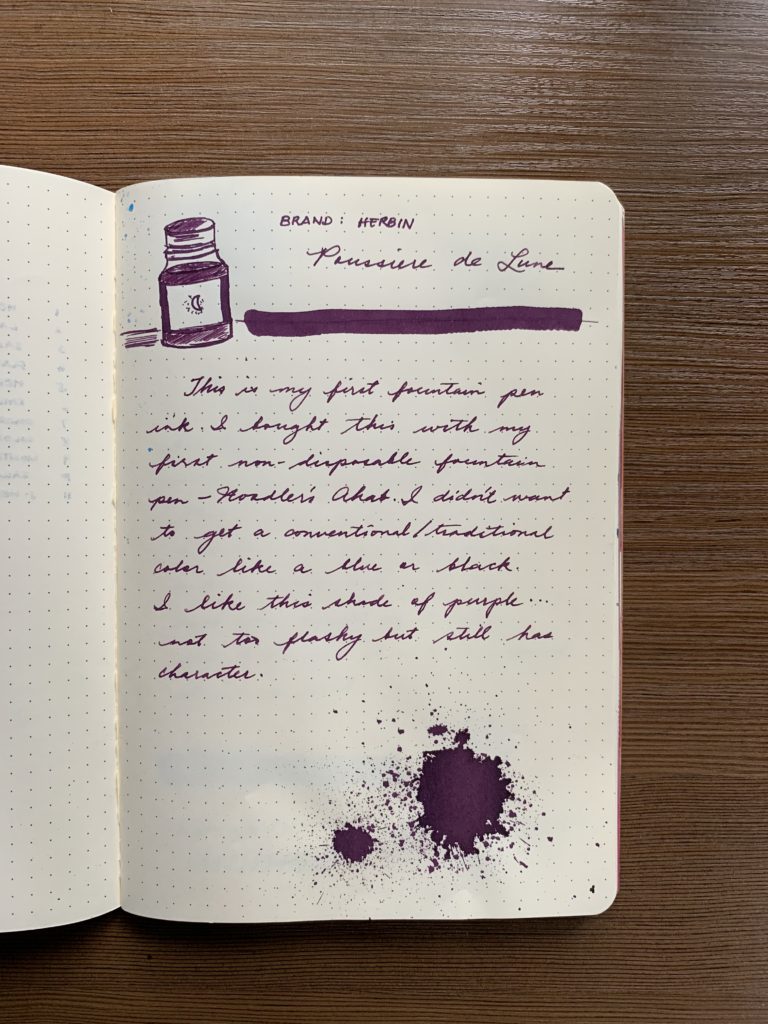 BRAND: HERBIN
Poussiere de Lune
This is my first fountain pen
ink. I bought this with my
first non-disposable fountain
pen – Noodler's Ahab. I didn't want
to get a conventional/traditional
color like a blue or black.
I like this shade of purple...
not too flashy but still has
character.
4